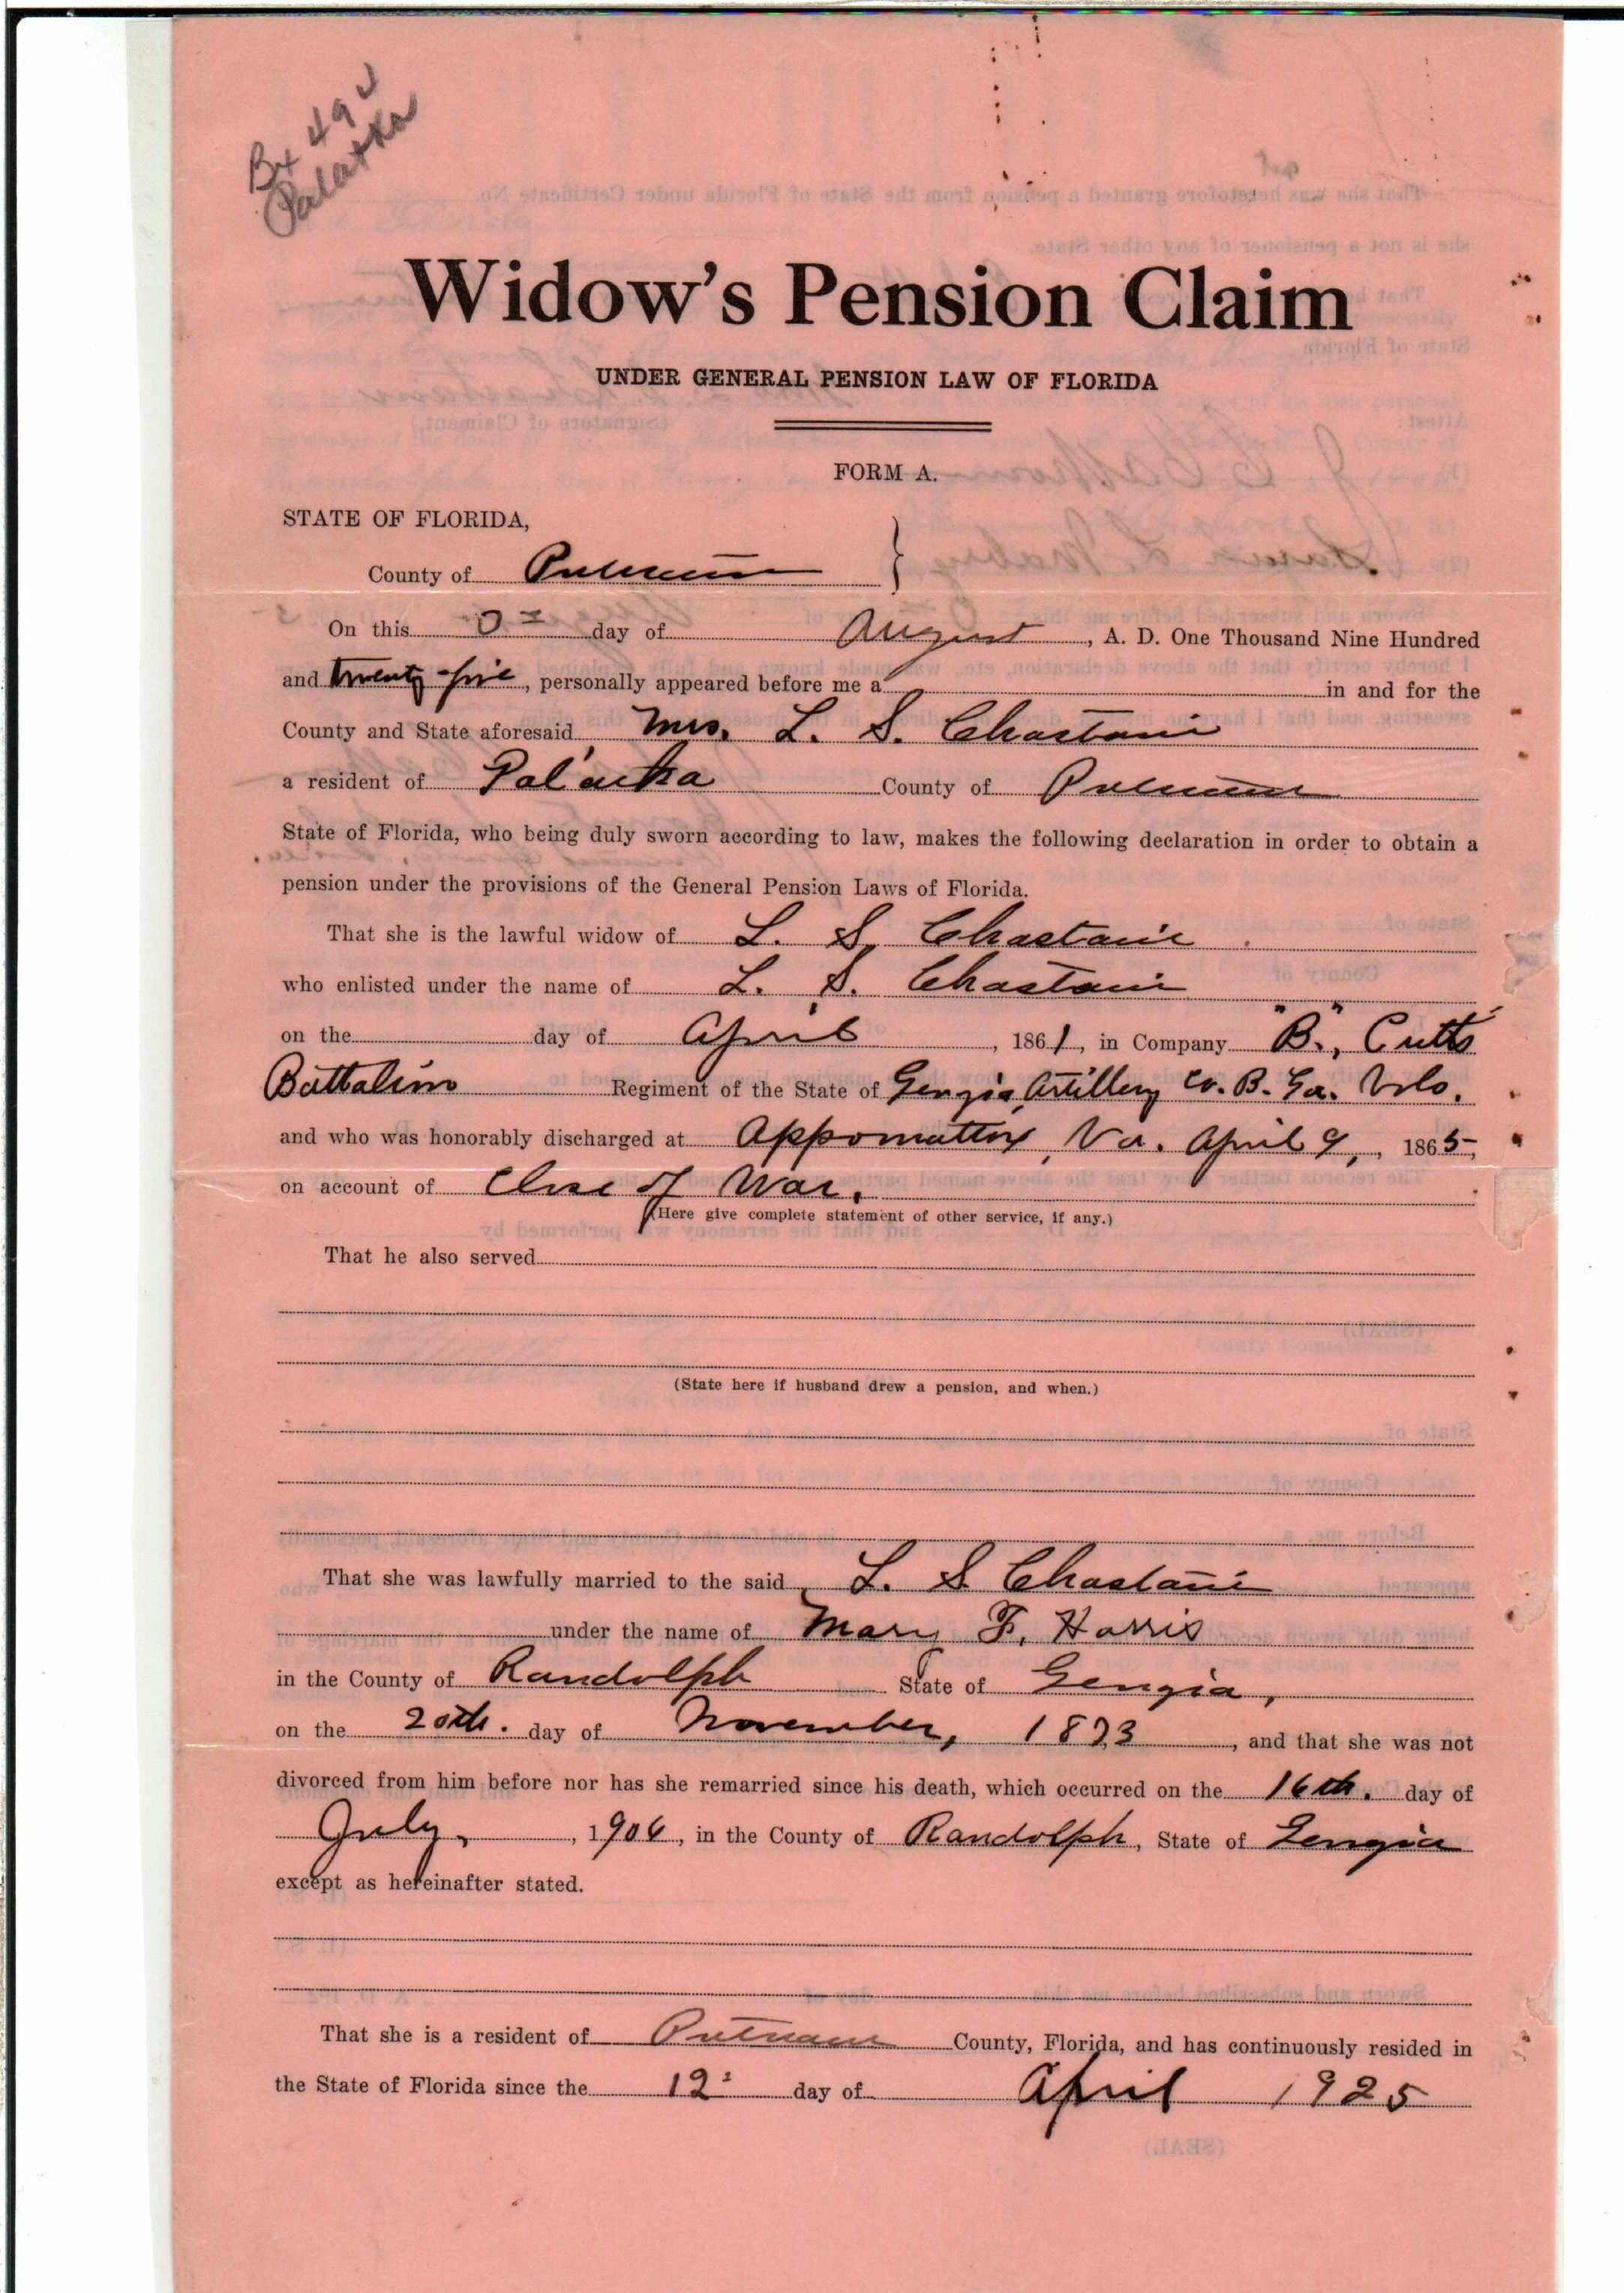 Bx 490
Palatka
Widow's Pension Claim
UNDER GENERAL PENSION LAW OF FLORIDA
FORM A.
STATE OF FLORIDA,
County of Putnam
On this day of August, A. D. One Thousand Nine Hundred
and twenty-five, personally appeared before me a in and for the
County and State aforesaid Mrs. L. S. Chastain
a resident of Palatka County of Putnam
State of Florida, who being duly sworn according to law, makes the following declaration in order to obtain a
pension under the provisions of the General Pension Laws of Florida.
That she is the lawful widow of L. S. Chastain
who enlisted under the name of L. S. Chastain
on the day of April, 1861, in Company "B", Cutts'
Battalion Regiment of the State of Georgia, Artillery Co. B. Ga. Vols.
and who was honorably discharged at Appomattox, Va. April 9, , 1865,
on account of Close of War.
(Here give complete statement of other service, if any.)
That he also served
(State here if husband drew a pension, and when.)
That she was lawfully married to the said L. S. Chastain
under the name of Mary F. Harris
in the County of Randolph State of Georgia,
on the 20th. day of November, 1873, and that she was not
divorced from him before nor has she remarried since his death, which occurred on the 16th. day of
July, , 1906, in the County of Randolph, State of Georgia
except as hereinafter stated.
That she is a resident of Putnam County, Florida, and has continuously resided in
the State of Florida since the 12 day of April 1925